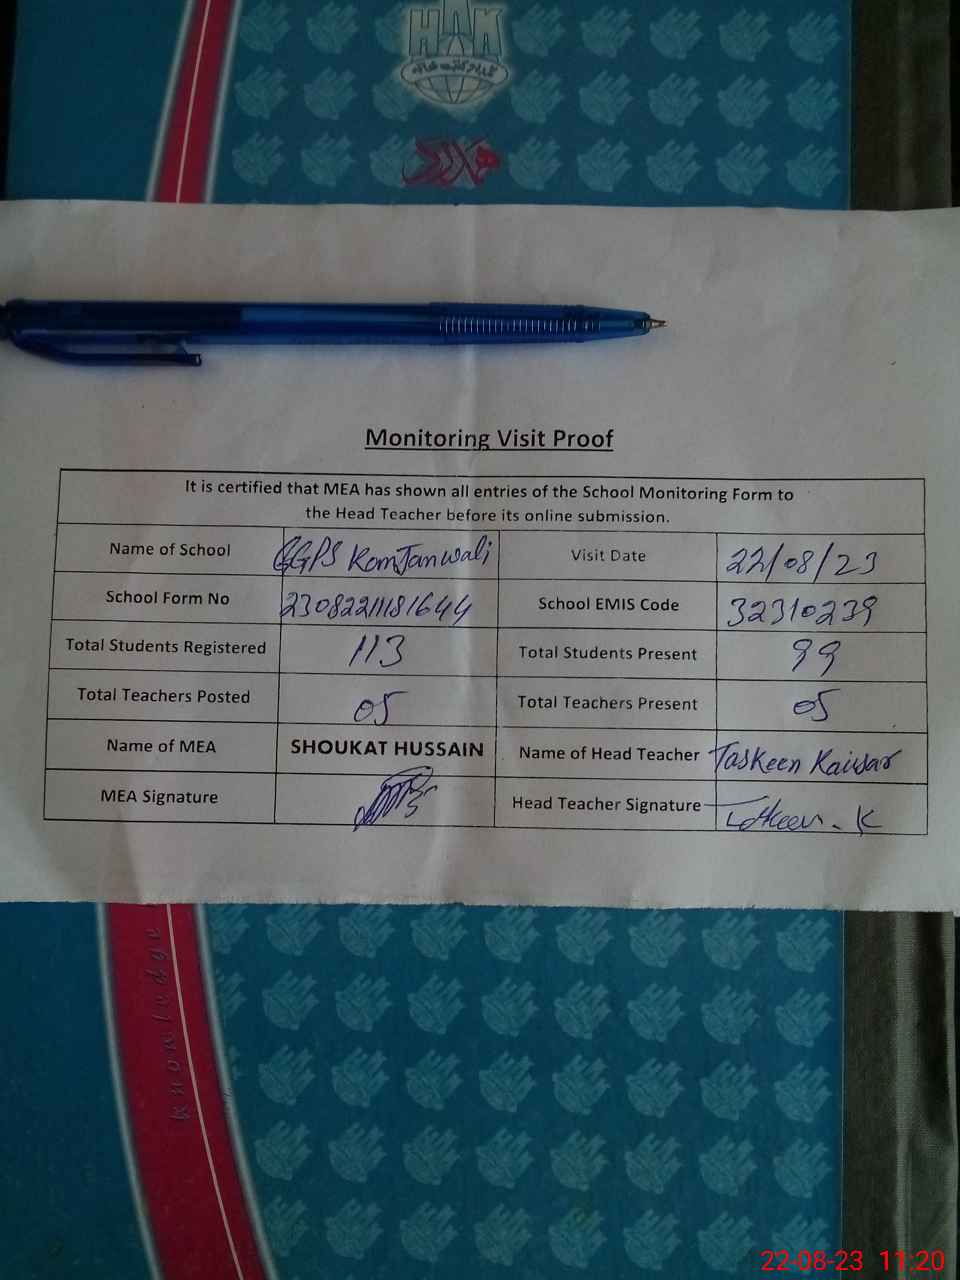 HAK
Monitoring Visit Proof
It is certified that MEA has shown all entries of the School Monitoring Form to
the Head Teacher before its online submission.
Name of School GGPS KamJanwali Visit Date 22/08/23
School Form No 23082211181644 School EMIS Code 32310239
Total Students Registered 113 Total Students Present 99
Total Teachers Posted 05 Total Teachers Present 05
Name of MEA SHOUKAT HUSSAIN Name of Head Teacher Taskeen Kaiwar
MEA Signature Head Teacher Signature
knowledge
22-08-23 11:20